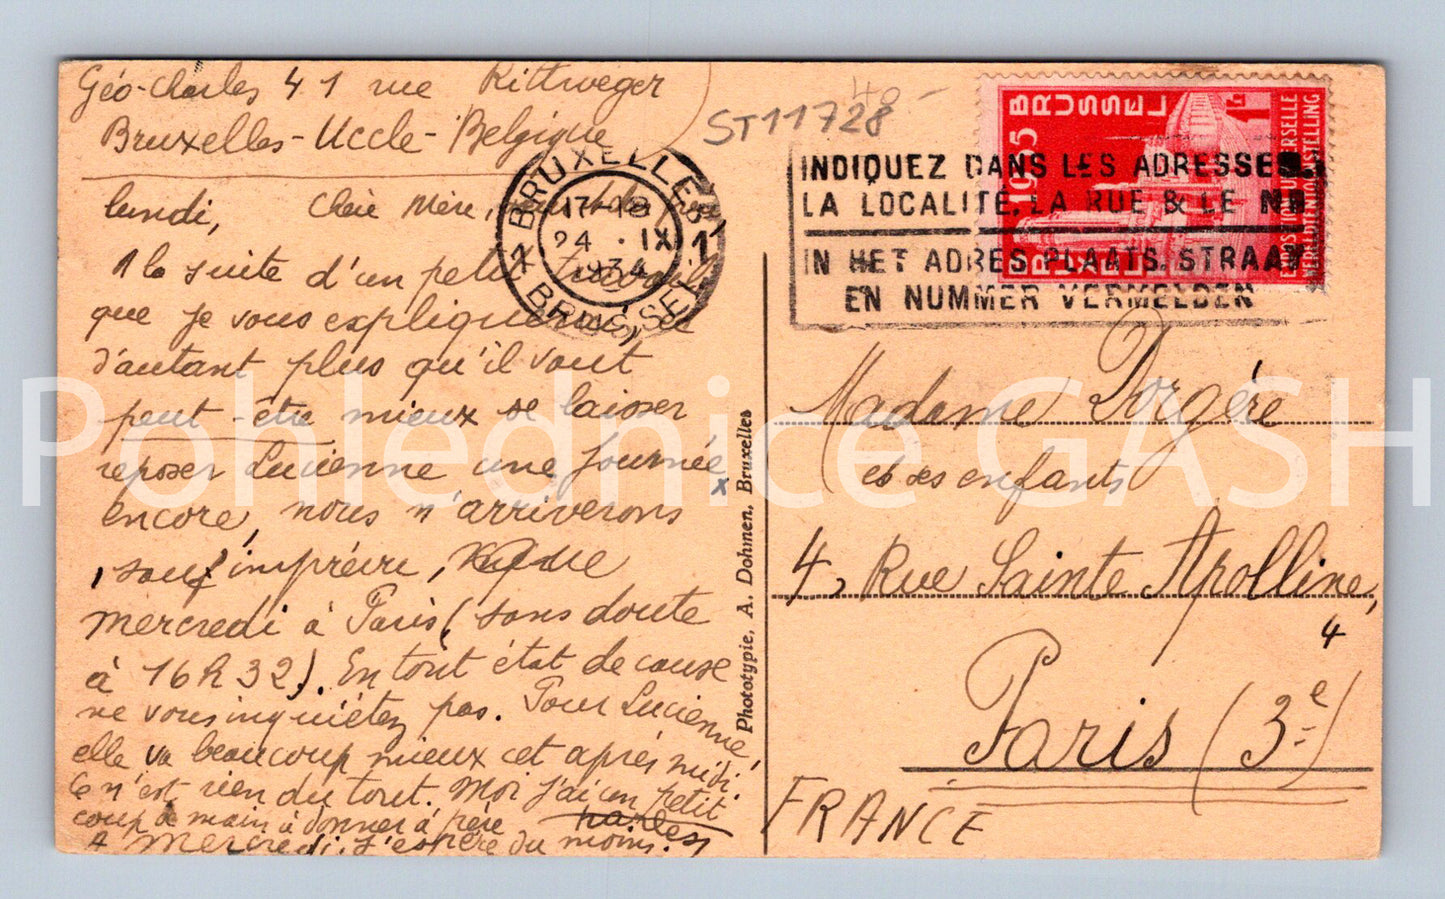 Géo-Charles 41 rue Rittweger
Bruxelles-Uccle-Belgique
ST11728
40 -
lundi, Chère Mère,
A la suite d'un petit
que je vous expliquerai, et
d'autant plus qu'il vaut
peut-être mieux se laisser
reposer Lucienne une journée
encore, nous n'arriverons
, sauf imprévu, que
mercredi à Paris (sans doute
à 16h32). En tout état de cause
ne vous inquiétez pas. Pour Lucienne,
elle va beaucoup mieux cet après midi.
Ce n'est rien du tout. Moi j'ai un petit
coup de main à donner à père
A Mercredi. J'espère du moins.
BRUXELLES 1
17-18
24 . IX
1934
BRUSSEL 1
INDIQUEZ DANS LES ADRESSES
LA LOCALITE, LA RUE & LE No
IN HET ADRES PLAATS, STRAAT
EN NUMMER VERMELDEN
BRUSSEL
1935
BRUXELLES
1F
EXPOSITION UNIVERSELLE
WERELDTENTOONSTELLING
Phototypie, A. Dohmen, Bruxelles
Madame Dorgère
et ses enfants
4, Rue Sainte Apolline,
4
Paris (3e)
FRANCE
Pohlednice GASH